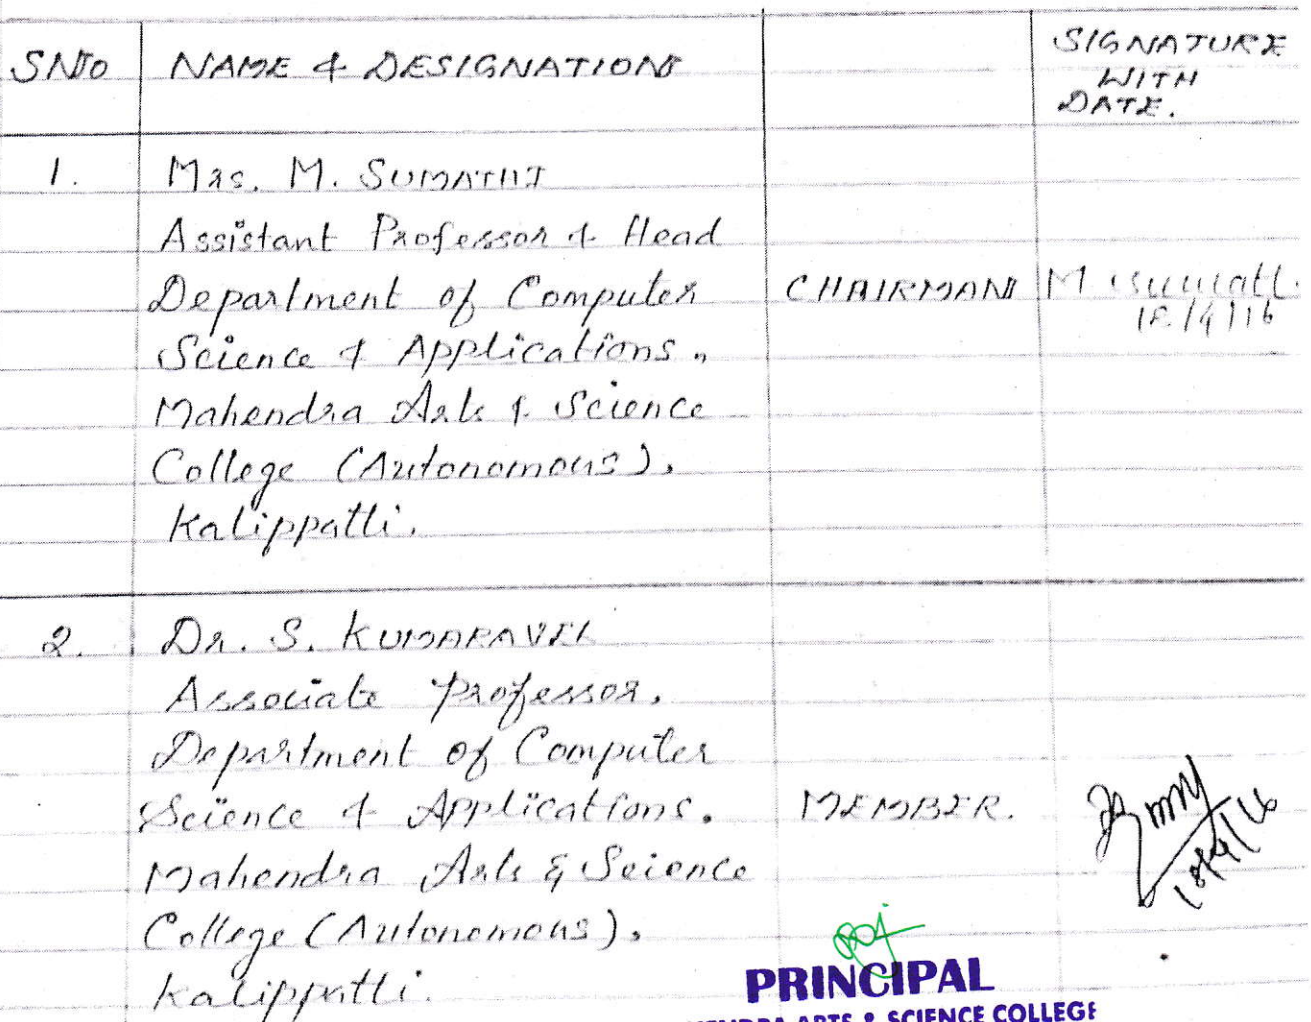 SNO NAME & DESIGNATION SIGNATURE WITH DATE.
1. Mrs. M. SUMATHI
Assistant Professor & Head
Department of Computer CHAIRMAN M. Sumathi
Science & Applications.
Mahendra Arts & Science
College (Autonomous),
Kalippatti.
2. Dr. S. KUMARAVEL
Associate Professor,
Department of Computer
Science & Applications. MEMBER.
Mahendra Arts & Science
College (Autonomous),
Kalippatti.
PRINCIPAL
ARTS & SCIENCE COLLEGE